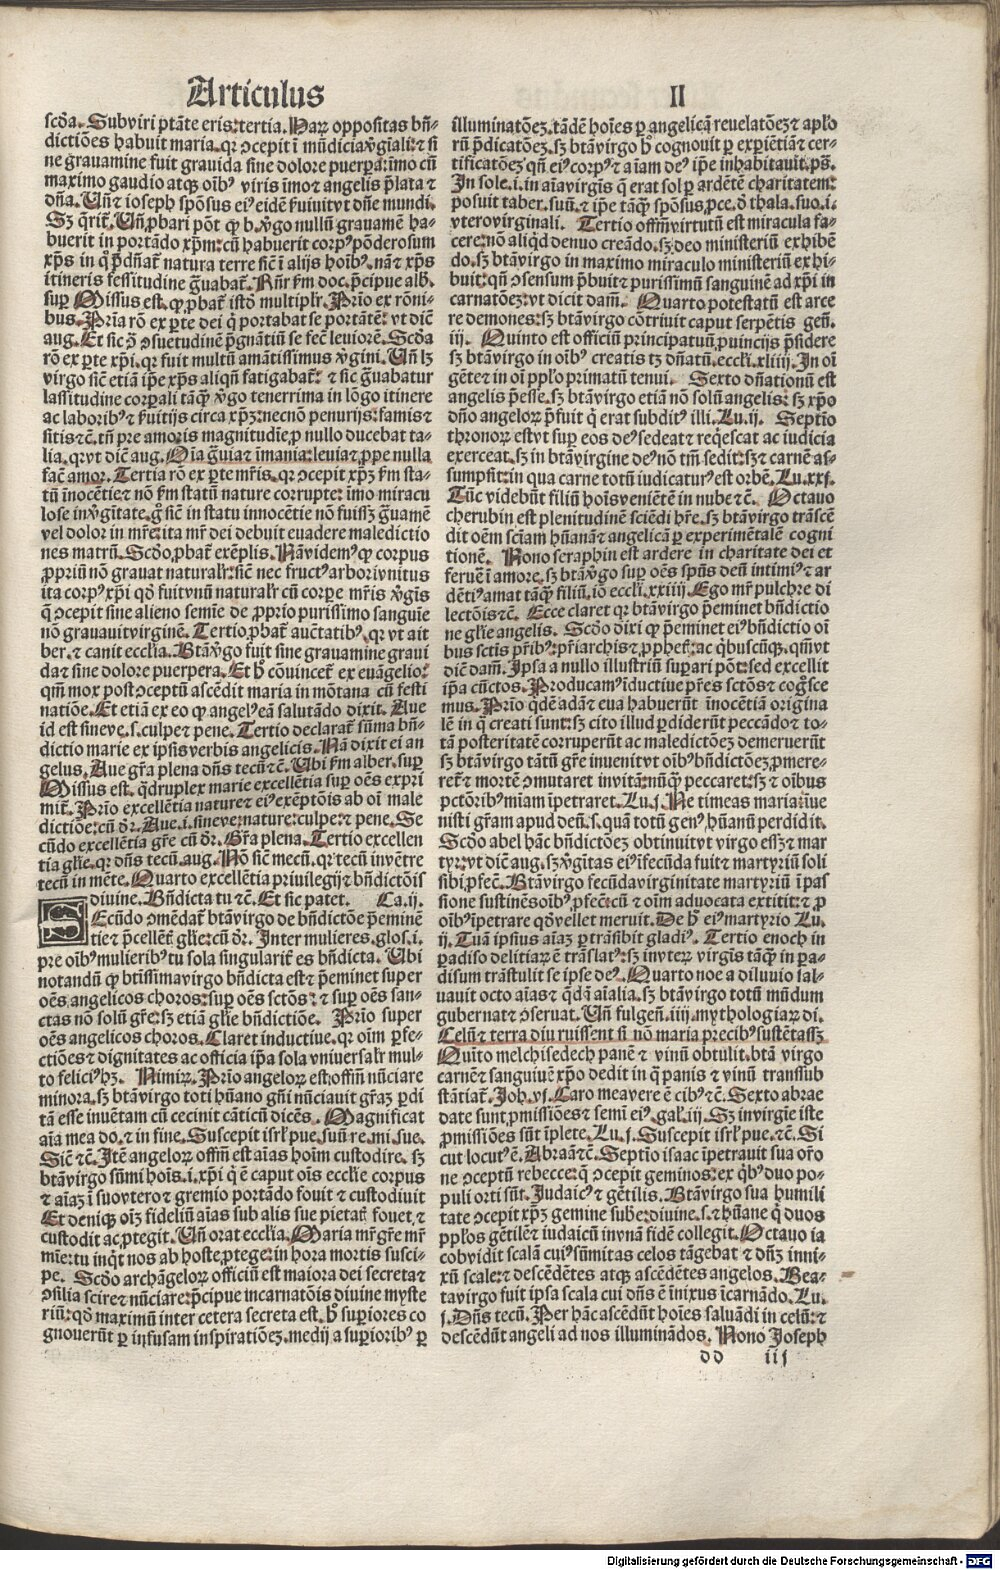 Articulus II
scďa. Subviri ptãte eris: tertia. Haꝝ oppositas bñ-
dictiões habuit maria. qꝛ ꝯcepit ĩ mũdicia v̾giali: ⁊ si
ne grauamine fuit grauida sine dolore puerpa: imo cũ
maximo gaudio atqꝫ oĩbꝰ viris imo ⁊ angelis p̃lata ⁊
dña. Uñ ⁊ ioseph spõsus eiꝰ eidẽ ẜuiuit vt dñe mundi.
maximo miraculo ministeriũ exhi-
aug. Et sic ꝯ̃ ꝯsuetudinẽ p̃gnãtiũ se fec̃ leuiorẽ. Scďa
rõ ex pte xp̃i. qꝛ fuit multũ amãtissimus v̾gini. Uñ lꝫ
virgo sic̃ etiã ip̃e xp̃s aliqñ fatigabat̃: ⁊ sic g̃uabatur
lassitudine corpali tãqꝫ v̾go tenerrima in lõgo itinere
ac laboribꝰ ⁊ ẜuitijs circa xp̃ꝫ: necnõ penurijs: famis ⁊
sitis ⁊c̃. tñ pre amoris magnitudĩe ꝓ nullo ducebat ta-
lia. qꝛ vt dic̃ aug. Oĩa g̃uia ⁊ imania: leuia ⁊ ꝓpe nulla
fac̃ amor. Tertia rõ ex pte mr̃is. qꝛ ꝯcepit xp̃ꝫ ẜm sta-
tũ inocẽtie ⁊ nõ ẜm statũ nature corrupte: imo miracu
lose in v̾gĩtate. g̊ sic̃ in statu innocẽtie nõ fuissꝫ g̃uamẽ
vel dolor in mr̃e: ita mr̃ dei debuit euadere maledictio
nes matrũ. Scďo ꝓbat̃ exẽplis. Nã videmꝰ ꝙ corpus
ꝓpriũ nõ grauat naturalr̃: sic̃ nec fructꝰ arbori vnitus
ita corpꝰ xp̃i qď fuit vnũ naturalr̃ cũ corpe mr̃is v̾gĩs
nõ grauauit virginẽ. Tertio ꝓbat̃ auc̃tatibꝰ. qꝛ vt ait
ber. ⁊ canit eccl̃ia. Btã v̾go fuit sine grauamine graui
da ⁊ sine dolore puerpera. Et h̃ cõuincet̃ ex euãgelio:
qm̃ mox post ꝯceptũ ascẽdit maria in mõtana cũ festi
natiõe. Et etiã ex eo ꝙ angelꝰ eã salutãdo dixit. Aue
id est sine ve. s. culpe ⁊ pene. Tertio declarat̃ sũma bñ-
dictio marie ex ipsis verbis angelicis. Nã dixit ei an
gelus. Aue gr̃a plena dñs tecũ ⁊c̃. Ubi ẜm alber. suꝑ
Missus est. qďruplex marie excellẽtia suꝑ oẽs expri
mit̃. Prĩo excellẽtia nature ⁊ eiꝰ exẽptõis ab oĩ male
dictiõe: cũ dr̃. Aue. i. sine ve: nature: culpe ⁊ pene. Se
cũdo excellẽtia gr̃e cũ dr̃. Gr̃a plena. Tertio excellen
tia gl̃ie. qꝛ dñs tecũ. aug. Nõ sic̃ mecũ. qꝛ tecũ in vẽtre
tecũ in mẽte. Quarto excellẽtia priuilegij ⁊ bñdictõis
diuine. Bñdicta tu ⁊c̃. Et sic patet. Ca. ij.
SEcũdo ꝯmẽdat̃ btã virgo de bñdictõe p̃eminẽ
tie ⁊ p̃cellẽt̃ gl̃ie: cũ dr̃. Inter mulieres. glos. i.
pre oĩbꝰ mulieribꝰ tu sola singularit̃ es bñdicta. Ubi
notandũ ꝙ btissima virgo bñdicta est ⁊ p̃eminet super
oẽs angelicos choros: suꝑ oẽs sctõs: ⁊ suꝑ oẽs san-
ctas nõ solũ gr̃e sꝫ etiã gl̃ie bñdictiõe. Prĩo super
oẽs angelicos choros. Claret inductiue. qꝛ oĩm pfe-
ctiões ⁊ dignitates ac officia ip̃a sola vniuersalr̃ mul-
to feliciꝰ hꝫ. Nimiꝝ. Prĩo angeloꝝ est: offm̃ nũciare
minora. sꝫ btã virgo toti hũano gñi nũciauit gr̃aꝫ pdi
tã esse inuẽtam cũ cecinit cãticũ dicẽs. Magnificat
aĩa mea do. ⁊ in fine. Suscepit isrl̃ pue. suũ re. mi. sue.
Sic̃ ⁊c̃. Itẽ angeloꝝ offm̃ est aĩas hoĩm custodire. sꝫ
btã virgo sũmi hoĩs. i. xp̃i q̃ ẽ caput oĩs eccl̃ie corpus
⁊ aĩaꝫ ĩ suo vtero ⁊ gremio portãdo fouit ⁊ custodiuit
Et deniqꝫ oĩꝫ fideliũ aĩas sub alis sue pietat̃ fouet. ⁊
custodit ac ꝓtegit. Uñ orat eccl̃ia. Maria mr̃ gr̃e mr̃
mĩe: tu inqꝫ nos ab hoste ꝓtege: in hora mortis susci-
pe. Scďo archãgeloꝝ officiũ est maiora dei secreta ⁊
ꝯsilia scire ⁊ nũciare: p̃cipue incarnatõis diuine myste
riũ: qď maximũ inter cetera secreta est. h̃ supiores co
gnouerũt ꝑ infusam inspiratiõeꝫ. medij a supioribꝰ ꝑ
illuminatõeꝫ. tãdẽ hoĩes ꝑ angelicã reuelatõeꝫ ⁊ apl̃o
rũ p̃dicatõeꝫ. sꝫ btã virgo h̃ cognouit ꝑ expiẽtiã ⁊ cer-
tificatõeꝫ qñ eiꝰ corpꝰ ⁊ aĩam deꝰ ip̃e inhabitauit. ps̃.
In sole. i. in aĩa virgĩs q̃ erat sol ꝑ ardẽtẽ charitatem:
posuit taber. suũ. ⁊ ip̃e tãqꝫ spõsus ꝓce. ď thala. suo. i.
vtero virginali. Tertio offm̃ virtutũ est miracula fa-
cere: nõ aliqď denuo creãdo. sꝫ deo ministeriũ exhibẽ
do. sꝫ btã virgo in maximo miraculo ministeriũ exhi-
buit: qñ ꝯsensum p̃buit ⁊ purissimũ sanguinẽ ad xp̃i in
carnatõeꝫ: vt dicit dam̃. Quarto potestatũ est arce
re demones: sꝫ btã virgo cõtriuit caput serpẽtis geñ.
iij. Quinto est officiũ principatuũ ꝓuincijs p̃sidere
sꝫ btã virgo in oĩbꝰ creatis tꝫ dñatũ. eccl̃i. xliiij. In oĩ
gẽte ⁊ in oĩ ppl̃o primatũ tenui. Sexto dñationũ est
angelis p̃esse. sꝫ btã virgo etiã nõ solũ angelis: sꝫ xp̃o
dño angeloꝝ p̃fuit q̃ erat subditꝰ illi. Lu. ij. Septĩo
thronoꝝ est vt suꝑ eos deꝰ sedeat ⁊ req̃escat ac iudicia
exerceat. sꝫ in btã virgine deꝰ nõ tm̃ sedit: sꝫ ⁊ carnẽ as-
sumpsit: in qua carne totũ iudicaturꝰ est orbẽ. Lu. xxj.
Tũc videbũt filiũ hoĩs veniẽtẽ in nube ⁊c̃. Octauo
cherubin est plenitudinẽ sciẽdi hr̃e. sꝫ btã virgo trãscẽ
dit oẽm scĩam hũanã ⁊ angelicã ꝑ experimẽtalẽ cogni
tionẽ. Nono seraphin est ardere in charitate dei et
feruẽ ĩ amore. sꝫ btã v̾go suꝑ oẽs spũs deũ intimiꝰ ⁊ ar
dẽtiꝰ amat tãqꝫ filiũ. iõ eccl̃i. xxiiij. Ego mr̃ pulchre di
lectõis ⁊c̃. Ecce claret qꝛ btã virgo p̃eminet bñdictio
ne gl̃ie angelis. Scďo dixi ꝙ p̃eminet eiꝰ bñdictio oĩ
bus sctis pr̃ibꝰ: pr̃iarchis ⁊ ꝓphet̃: ac q̃buscũqꝫ. qm̃ vt
dic̃ dam̃. Ipsa a nullo illustriũ supari põt: sed excellit
ip̃a cũctos. Producamꝰ ĩductiue pr̃es sctõs ⁊ cog̃sce
mus. Prĩo qďẽ adã ⁊ eua habuerũt inocẽtiã origina
lẽ in q̃ creati sunt: sꝫ cito illud pdiderũt peccãdo ⁊ to-
tã posteritatẽ corruperũt ac maledictõeꝫ demeruerũt
sꝫ btã virgo tãtũ gr̃e inuenit vt oĩbꝰ bñdictõeꝫ ꝓmere-
ret̃ ⁊ mortẽ ꝯmutaret in vitã: nũqꝫ peccaret: sꝫ ⁊ oĩbus
pctõribꝰ mĩam ĩpetraret. Lu. j. Ne timeas maria: ĩue
nisti gr̃am apud deũ. s. quã totũ genꝰ hũanũ perdidit.
Scďo abel hãc bñdictõeꝫ obtinuit vt virgo essꝫ ⁊ mar
tyr: vt dic̃ aug. sꝫ v̾gĩtas eiꝰ ĩfecũda fuit ⁊ martyriũ soli
sibi ꝓfec̃. Btã virgo fecũda virginitate martyriũ ĩ pas
sione sustinẽs oĩbꝰ ꝓfec̃: cũ ⁊ oĩm aduocata extitit: ⁊ ꝓ
oĩbꝰ ĩpetrare qď vellet meruit. De h̃ eiꝰ martyrio Lu.
ij. Tuã ipsius aĩaꝫ ptrãsibit gladiꝰ. Tertio enoch in
padiso delitiaꝝ ẽ trãslatꝰ: sꝫ in vteꝝ virgĩs tãqꝫ in pa-
disum trãstulit se ipse deꝰ. Quarto noe a diluuio sal-
uauit octo aĩas ⁊ qďã aĩalia. sꝫ btã virgo totũ mũdum
gubernat ⁊ ꝯseruat. Uñ fulgeñ. iiij. mythologiaꝝ di.
Celũ ⁊ terra diu ruissent si nõ maria precibꝰ sustẽtassꝫ
Quĩto melchisedech panẽ ⁊ vinũ obtulit. btã virgo
carnẽ ⁊ sanguinẽ xp̃o dedit in q̃ panis ⁊ vinũ transsub
stãtiat̃. Joh. vj. Caro mea vere ẽ cibꝰ ⁊c̃. Sexto abrae
date sunt ꝓmissiões ⁊ semĩ eiꝰ. gal̃. iij. Sꝫ in virgĩe iste
ꝓmissiões sũt ĩplete. Lu. j. Suscepit isrl̃ pue. ⁊c̃. Si
cut locutꝰ ẽ. Abraã ⁊c̃. Septĩo isaac ĩpetrauit sua or̃o
ne ꝯceptũ rebecce: q̃ ꝯcepit geminos: ex q̃bꝰ duo po-
puli orti sũt. Judaicꝰ ⁊ gẽtilis. Btã virgo sua humili
tate ꝯcepit xp̃ꝫ gemine sube: diuine. s. ⁊ hũane q̃ duos
ppl̃os gẽtilẽ ⁊ iudaicũ in vnã fidẽ collegit. Octauo ia
cob vidit scalã cuiꝰ sũmitas celos tãgebat ⁊ dñꝫ inni-
xũ scale: ⁊ descẽdẽtes atqꝫ ascẽdẽtes angelos. Bea-
ta virgo fuit ipsa scala cui dñs ẽ inixus ĩcarnãdo. Lu.
j. Dñs tecũ. Per hãc ascẽdũt hoĩes saluãdi in celũ: ⁊
descẽdũt angeli ad nos illuminãdos. Nono Joseph
dd iij
Digitalisierung gefördert durch die Deutsche Forschungsgemeinschaft - DFG